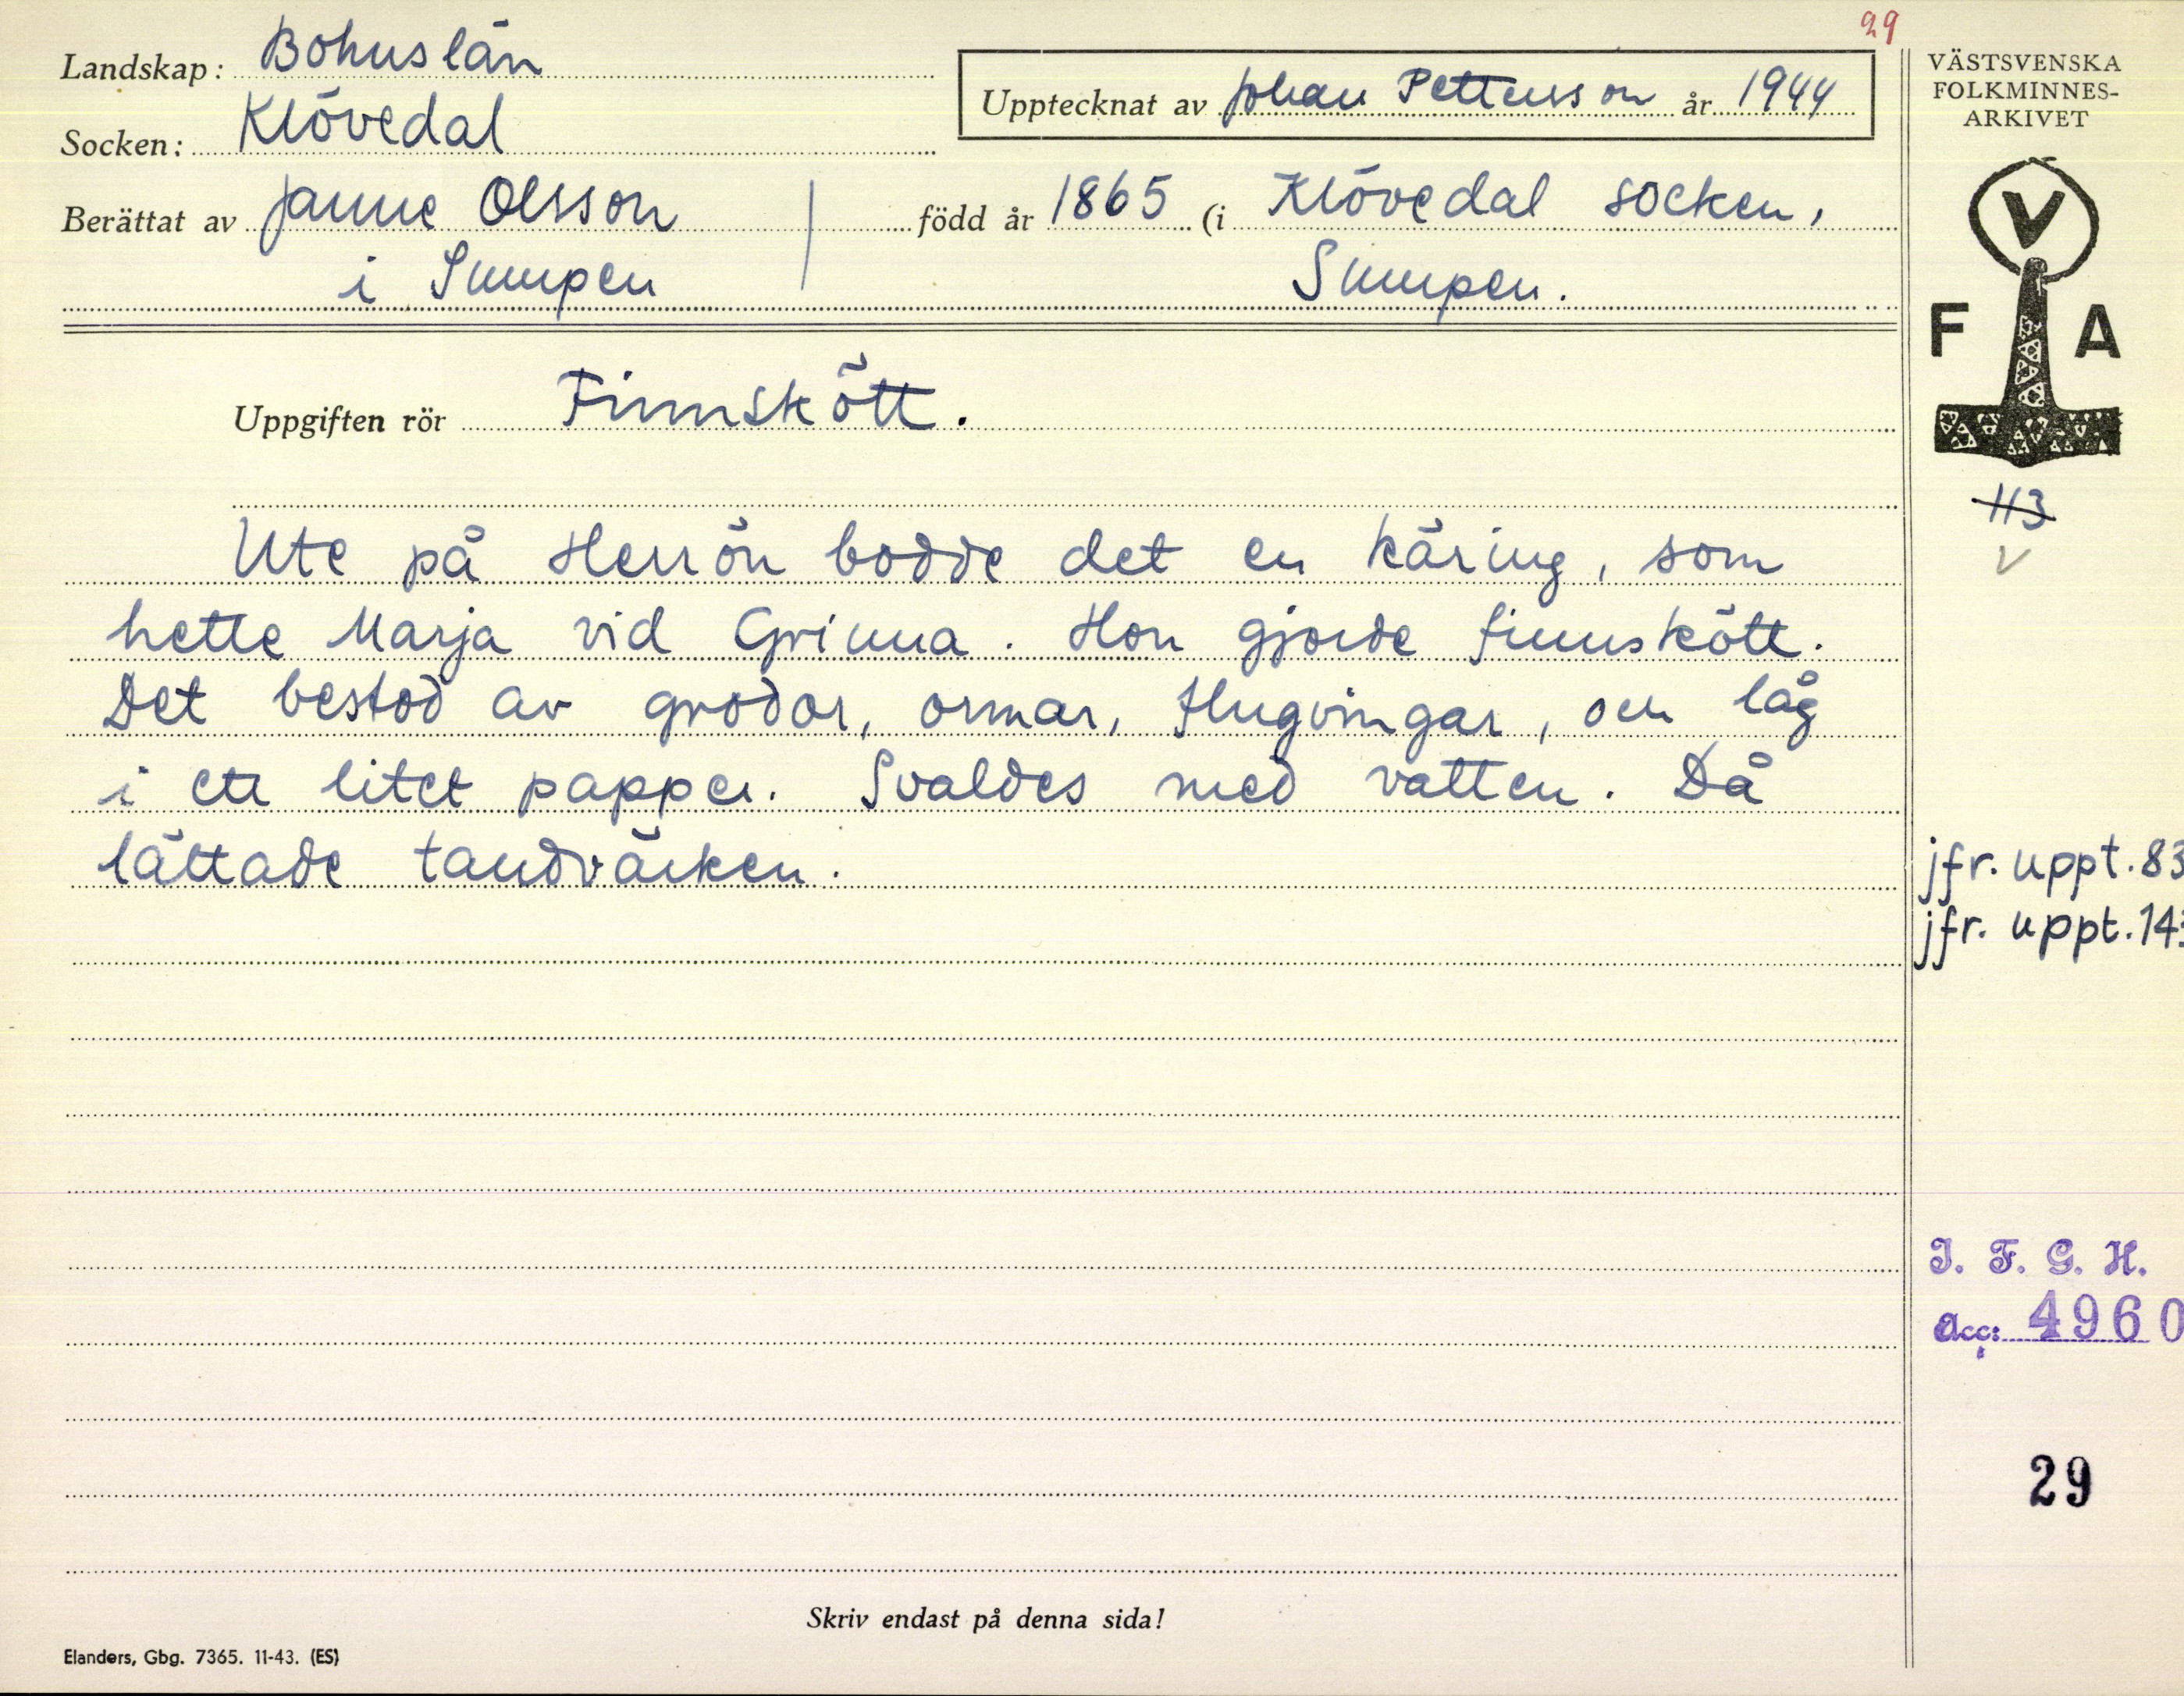 29
Landskap: Bohuslän
Upptecknat av Johan Pettersson år 1944
VÄSTSVENSKA
FOLKMINNES-
ARKIVET
Socken: Klövedal
Berättat av Janne Olsson född år 1865 (i Klövedal socken,
i Sumpen Sumpen.
V
F A
Uppgiften rör Finnskött.
113
V
Ute på Herrön bodde det en käring, som
hette Marja vid Grinna. Hon gjorde finnskött.
Det bestod av grodor, ormar, flugvingar, och låg
i ett litet papper. Svaldes med vatten. Då
lättade tandvärken.
jfr. uppt. 83
jfr. uppt. 14
I. F. G. H.
Acc: 4960
29
Skriv endast på denna sida!
Elanders, Gbg. 7365. 11-43. (ES)